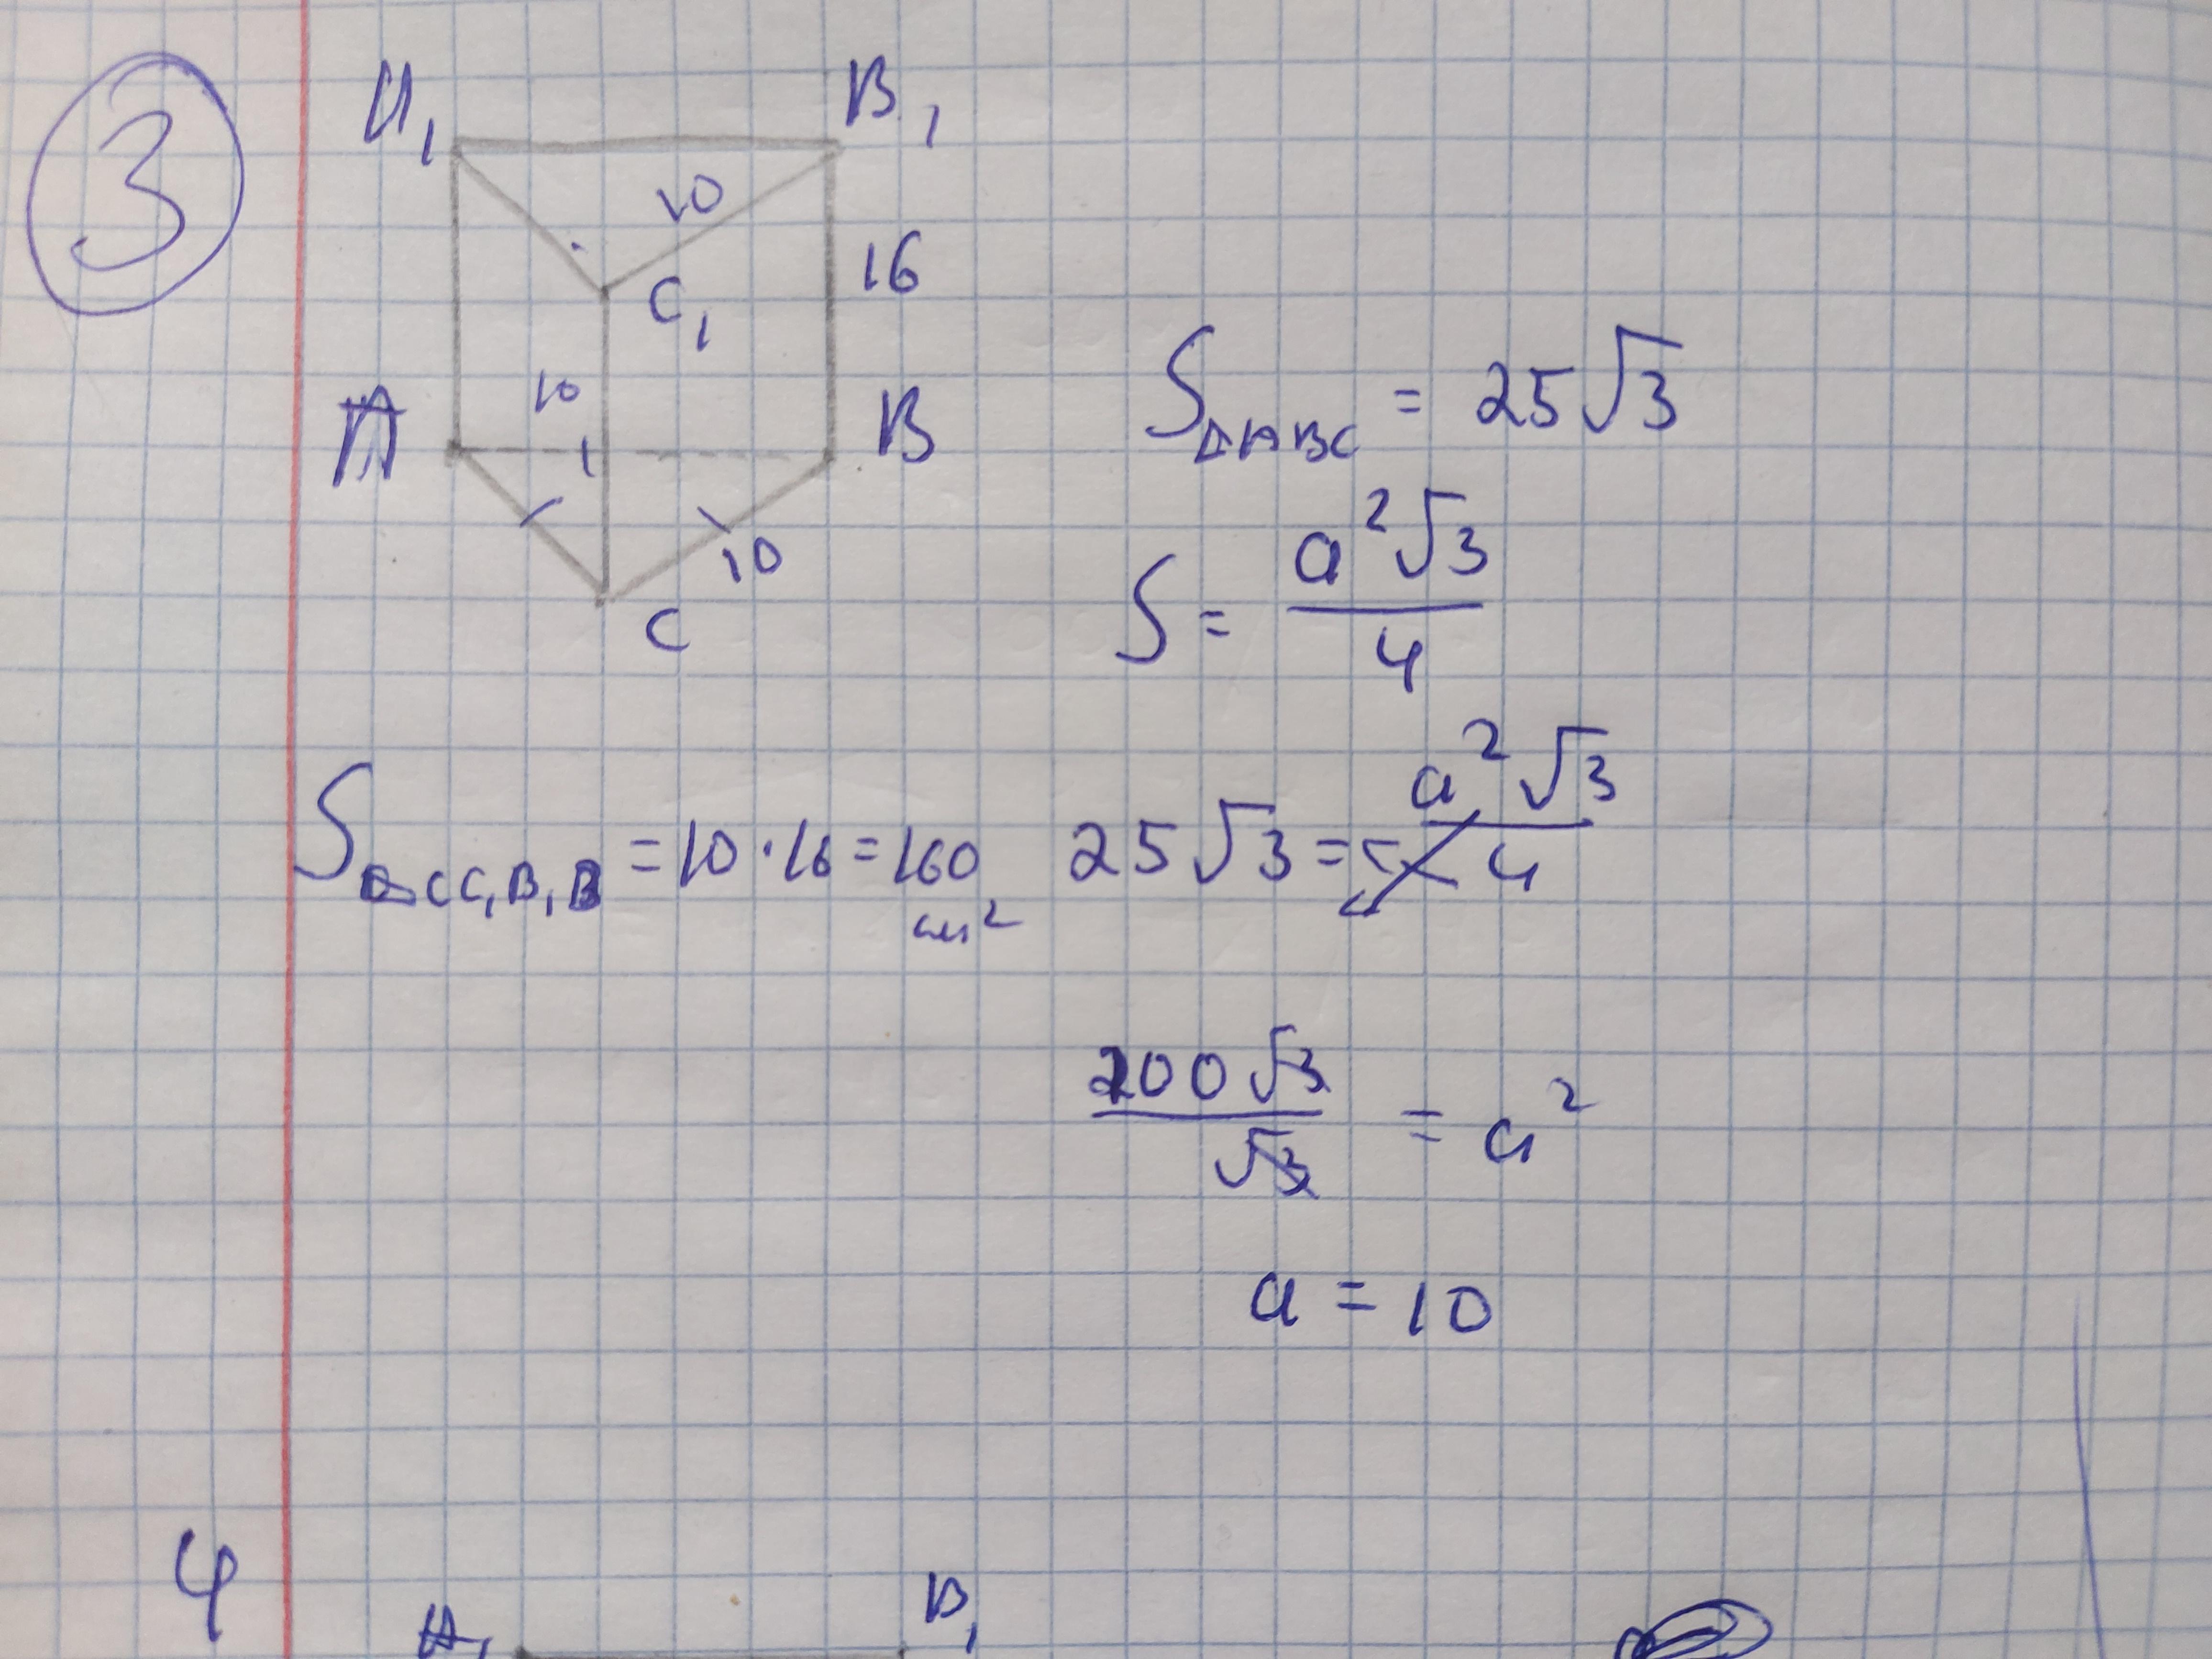 3
A₁ B₁
10
16
C₁
10
A B
10
C
S△ABC = 25√3
S = a²√3/4
S▱CC₁B₁B = 10·16 = 160 см²
25√3 = a²√3/4
100√3/√3 = a²
a = 10
4
A₁ B₁